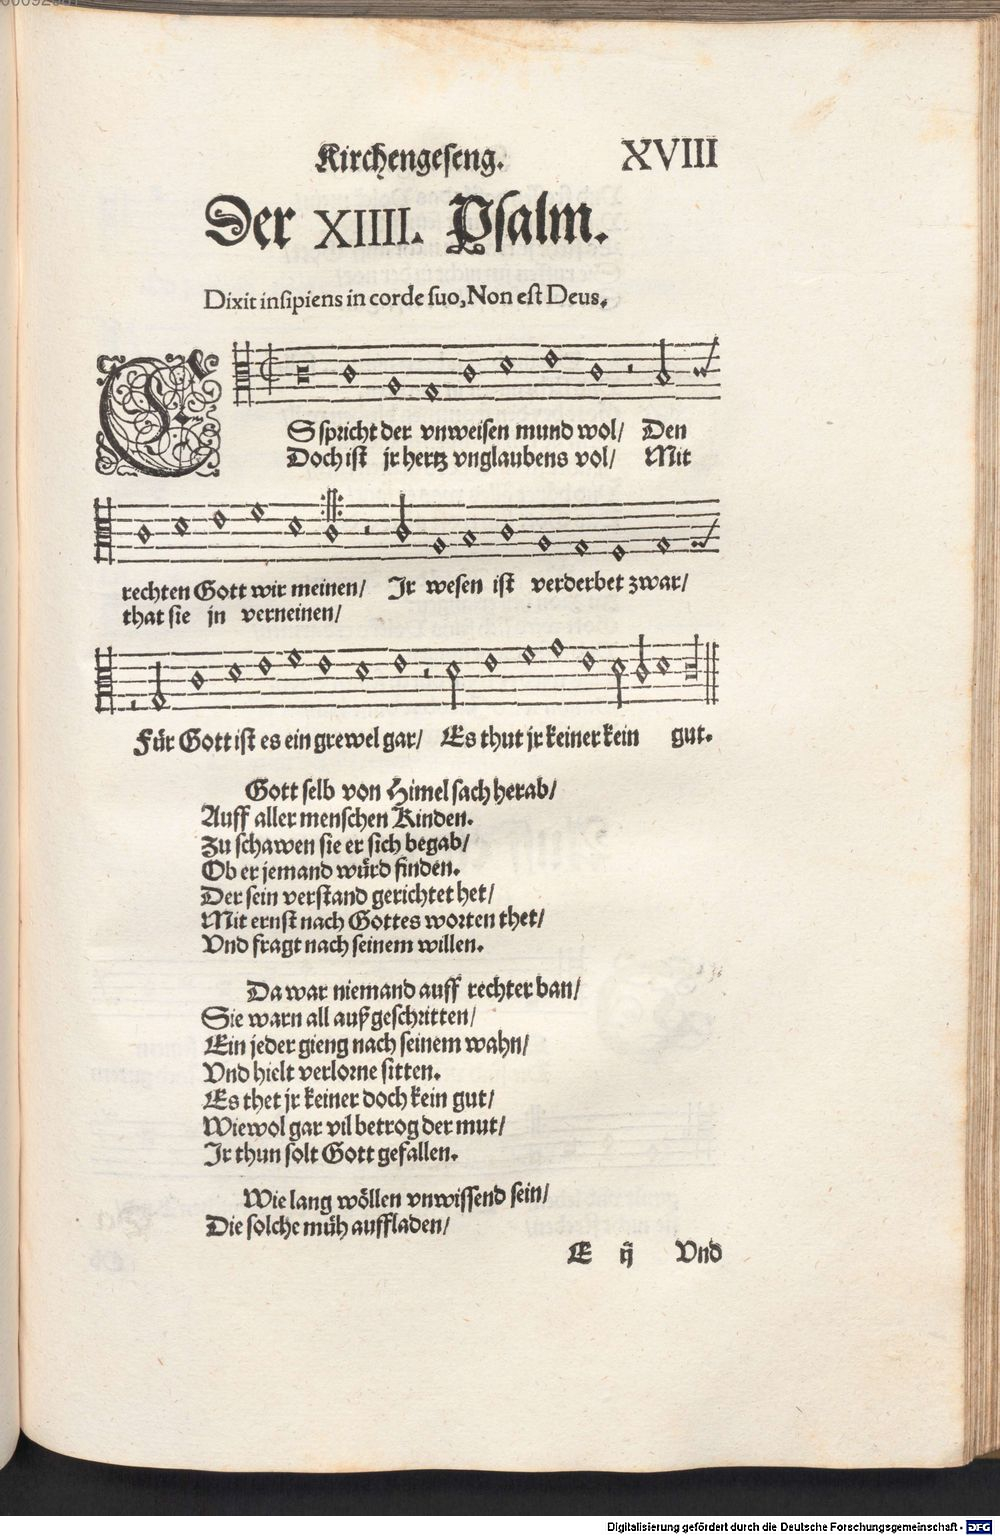 Kirchengeseng. XVIII
Der XIIII. Psalm.
Dixit insipiens in corde suo, Non est Deus.
ES spricht der vnweisen mund wol/ Den
Doch ist jr hertz vnglaubens vol/ Mit
rechten Gott wir meinen/ Jr wesen ist verderbet zwar/
that sie jn verneinen/
Für Gott ist es ein grewel gar/ Es thut jr keiner kein gut.
Gott selb von Himel sach herab/
Auff aller menschen Kinden.
Zu schawen sie er sich begab/
Ob er jemand würd finden.
Der sein verstand gerichtet het/
Mit ernst nach Gottes worten thet/
Vnd fragt nach seinem willen.
Da war niemand auff rechter ban/
Sie warn all außgeschritten/
Ein jeder gieng nach seinem wahn/
Vnd hielt verlorne sitten.
Es thet jr keiner doch kein gut/
Wiewol gar vil betrog der mut/
Jr thun solt Gott gefallen.
Wie lang wöllen vnwissend sein/
Die solche müh auffladen/
E ij Vnd
Digitalisierung gefördert durch die Deutsche Forschungsgemeinschaft - DFG